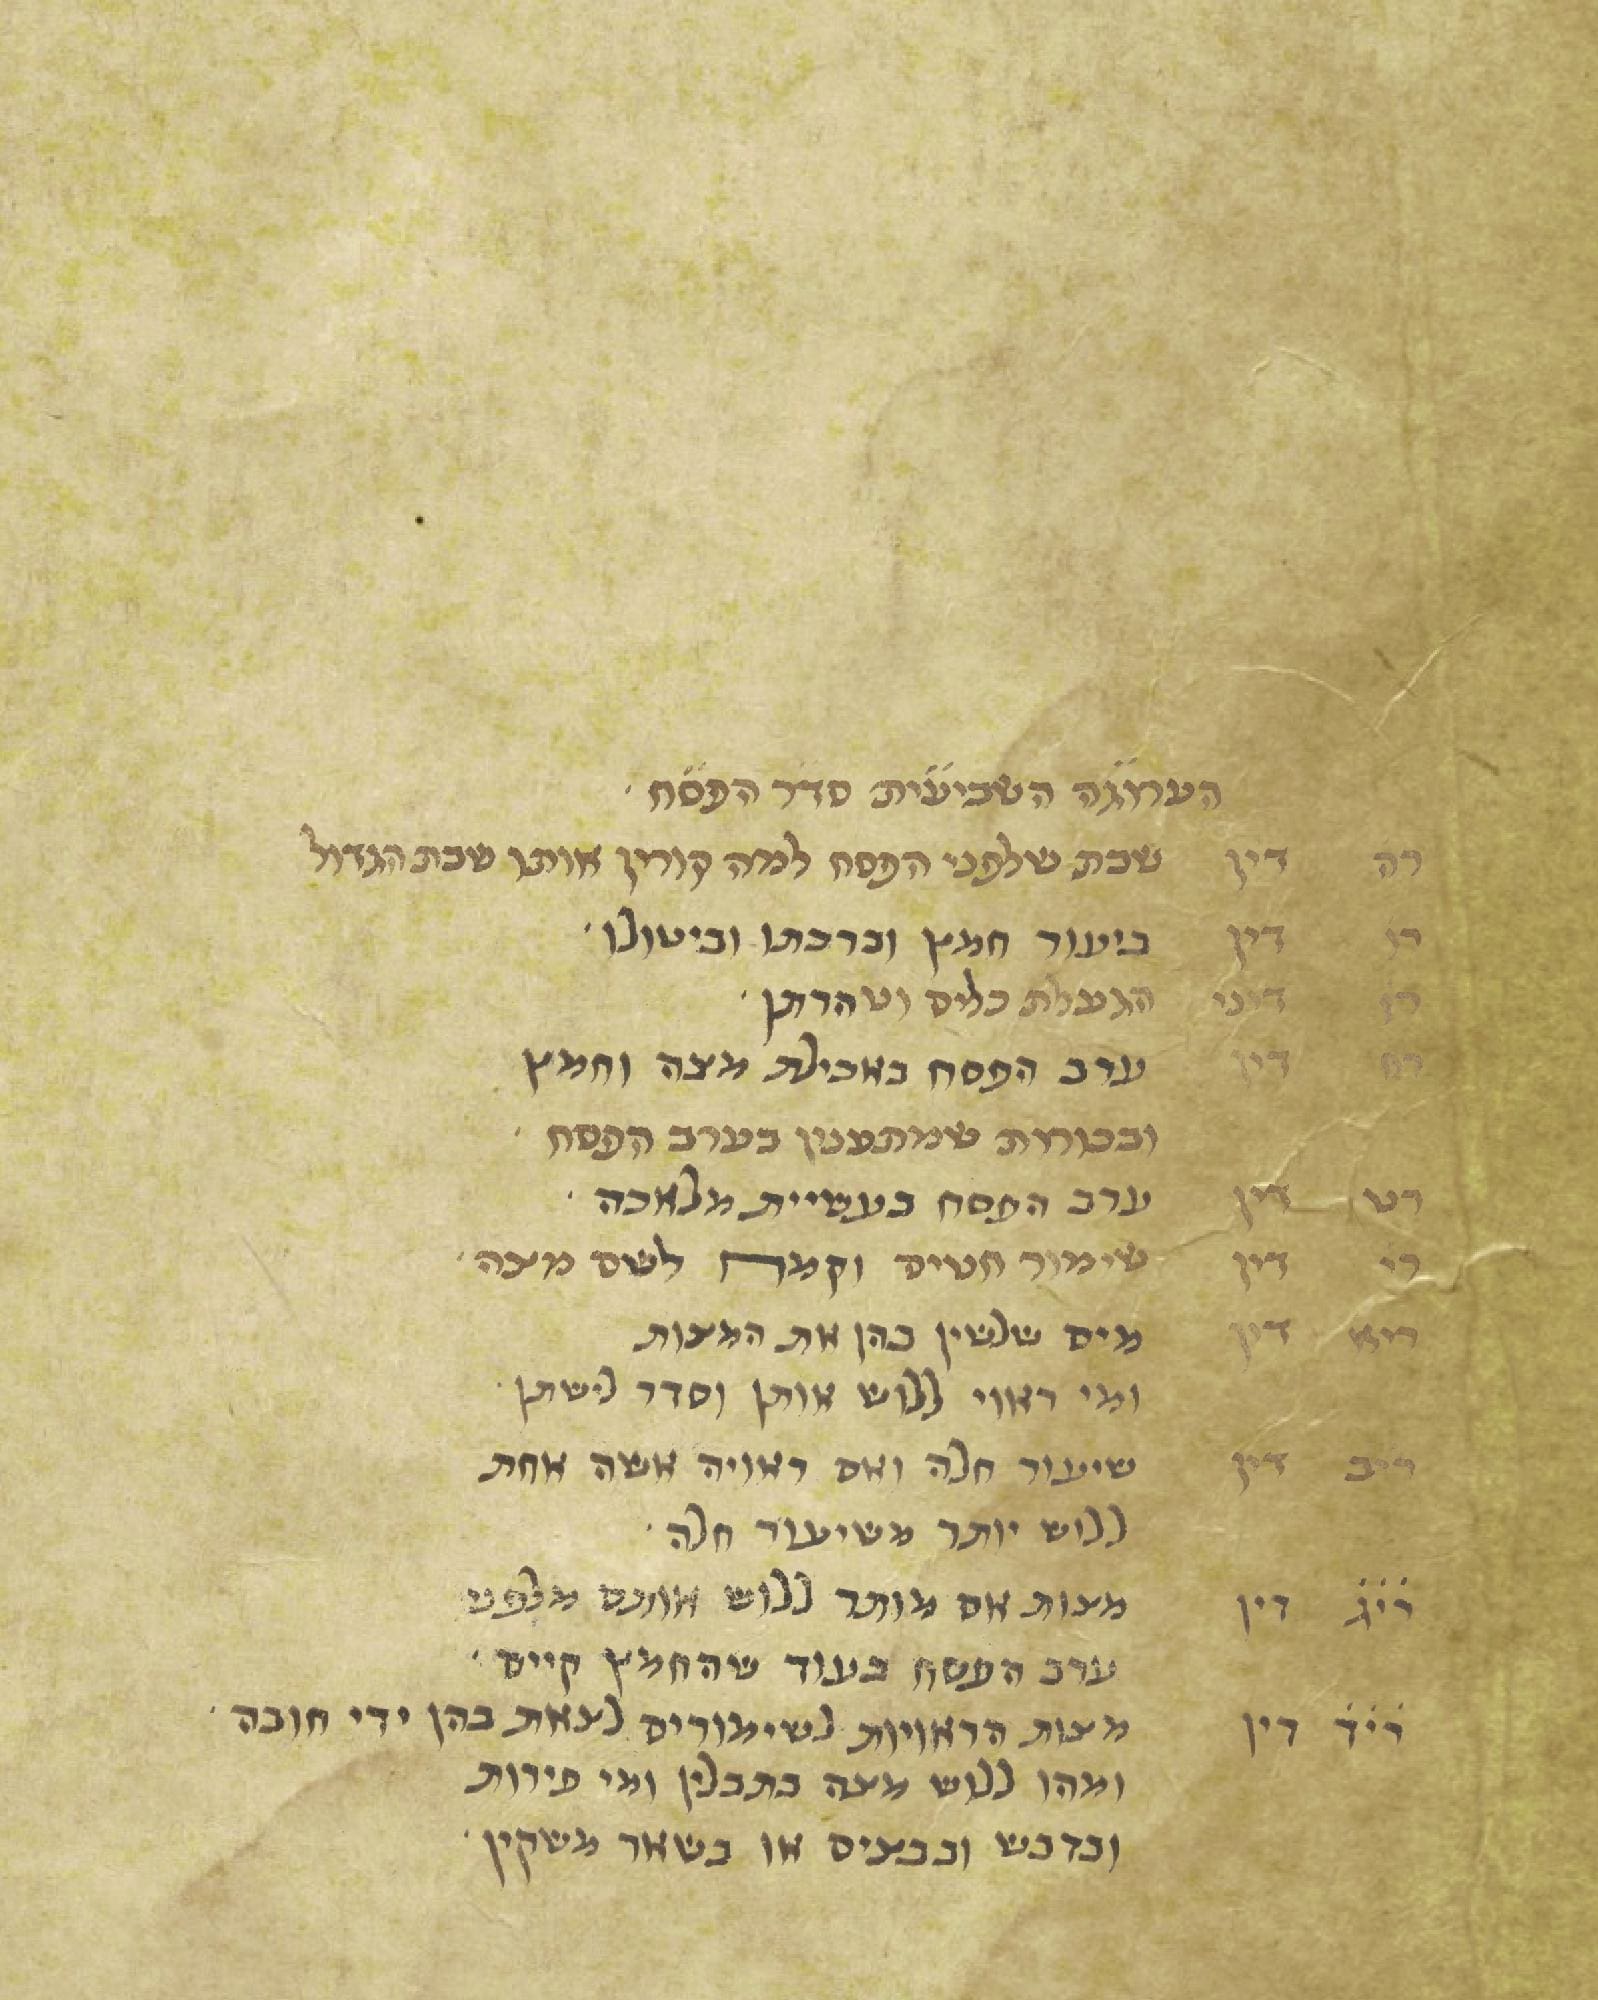 הערוגה השביעית סדר הפסח ·
רה דין שבת שלפני הפסח למה קורין אותו שבת הגדול
רו דין ביעור חמץ וברכתו וביטולו ·
רז דיני הגעלת כלים וטהרתן ·
רח דין ערב הפסח באכילת מצה וחמץ
ובכורות שמתענין בערב הפסח ·
רט דין ערב הפסח בעשיית מלאכה ·
רי דין שימור חטים וקמח לשם מצה ·
ריא דין מים שלשין בהן את המצות
ומי ראוי ללוש אותן וסדר לישתן ·
ריב דין שיעור חלה ואם ראויה אשה אחת
ללוש יותר משיעור חלה ·
ריג דין מצות אם מותר ללוש אותם מלפני
ערב הפסח בעוד שהחמץ קיים ·
ריד דין מצות הראויות לשימורים לצאת בהן ידי חובה ·
ומהו ללוש מצה בתבלין ומי פירות
ובדבש ובבצים או בשאר משקין ·